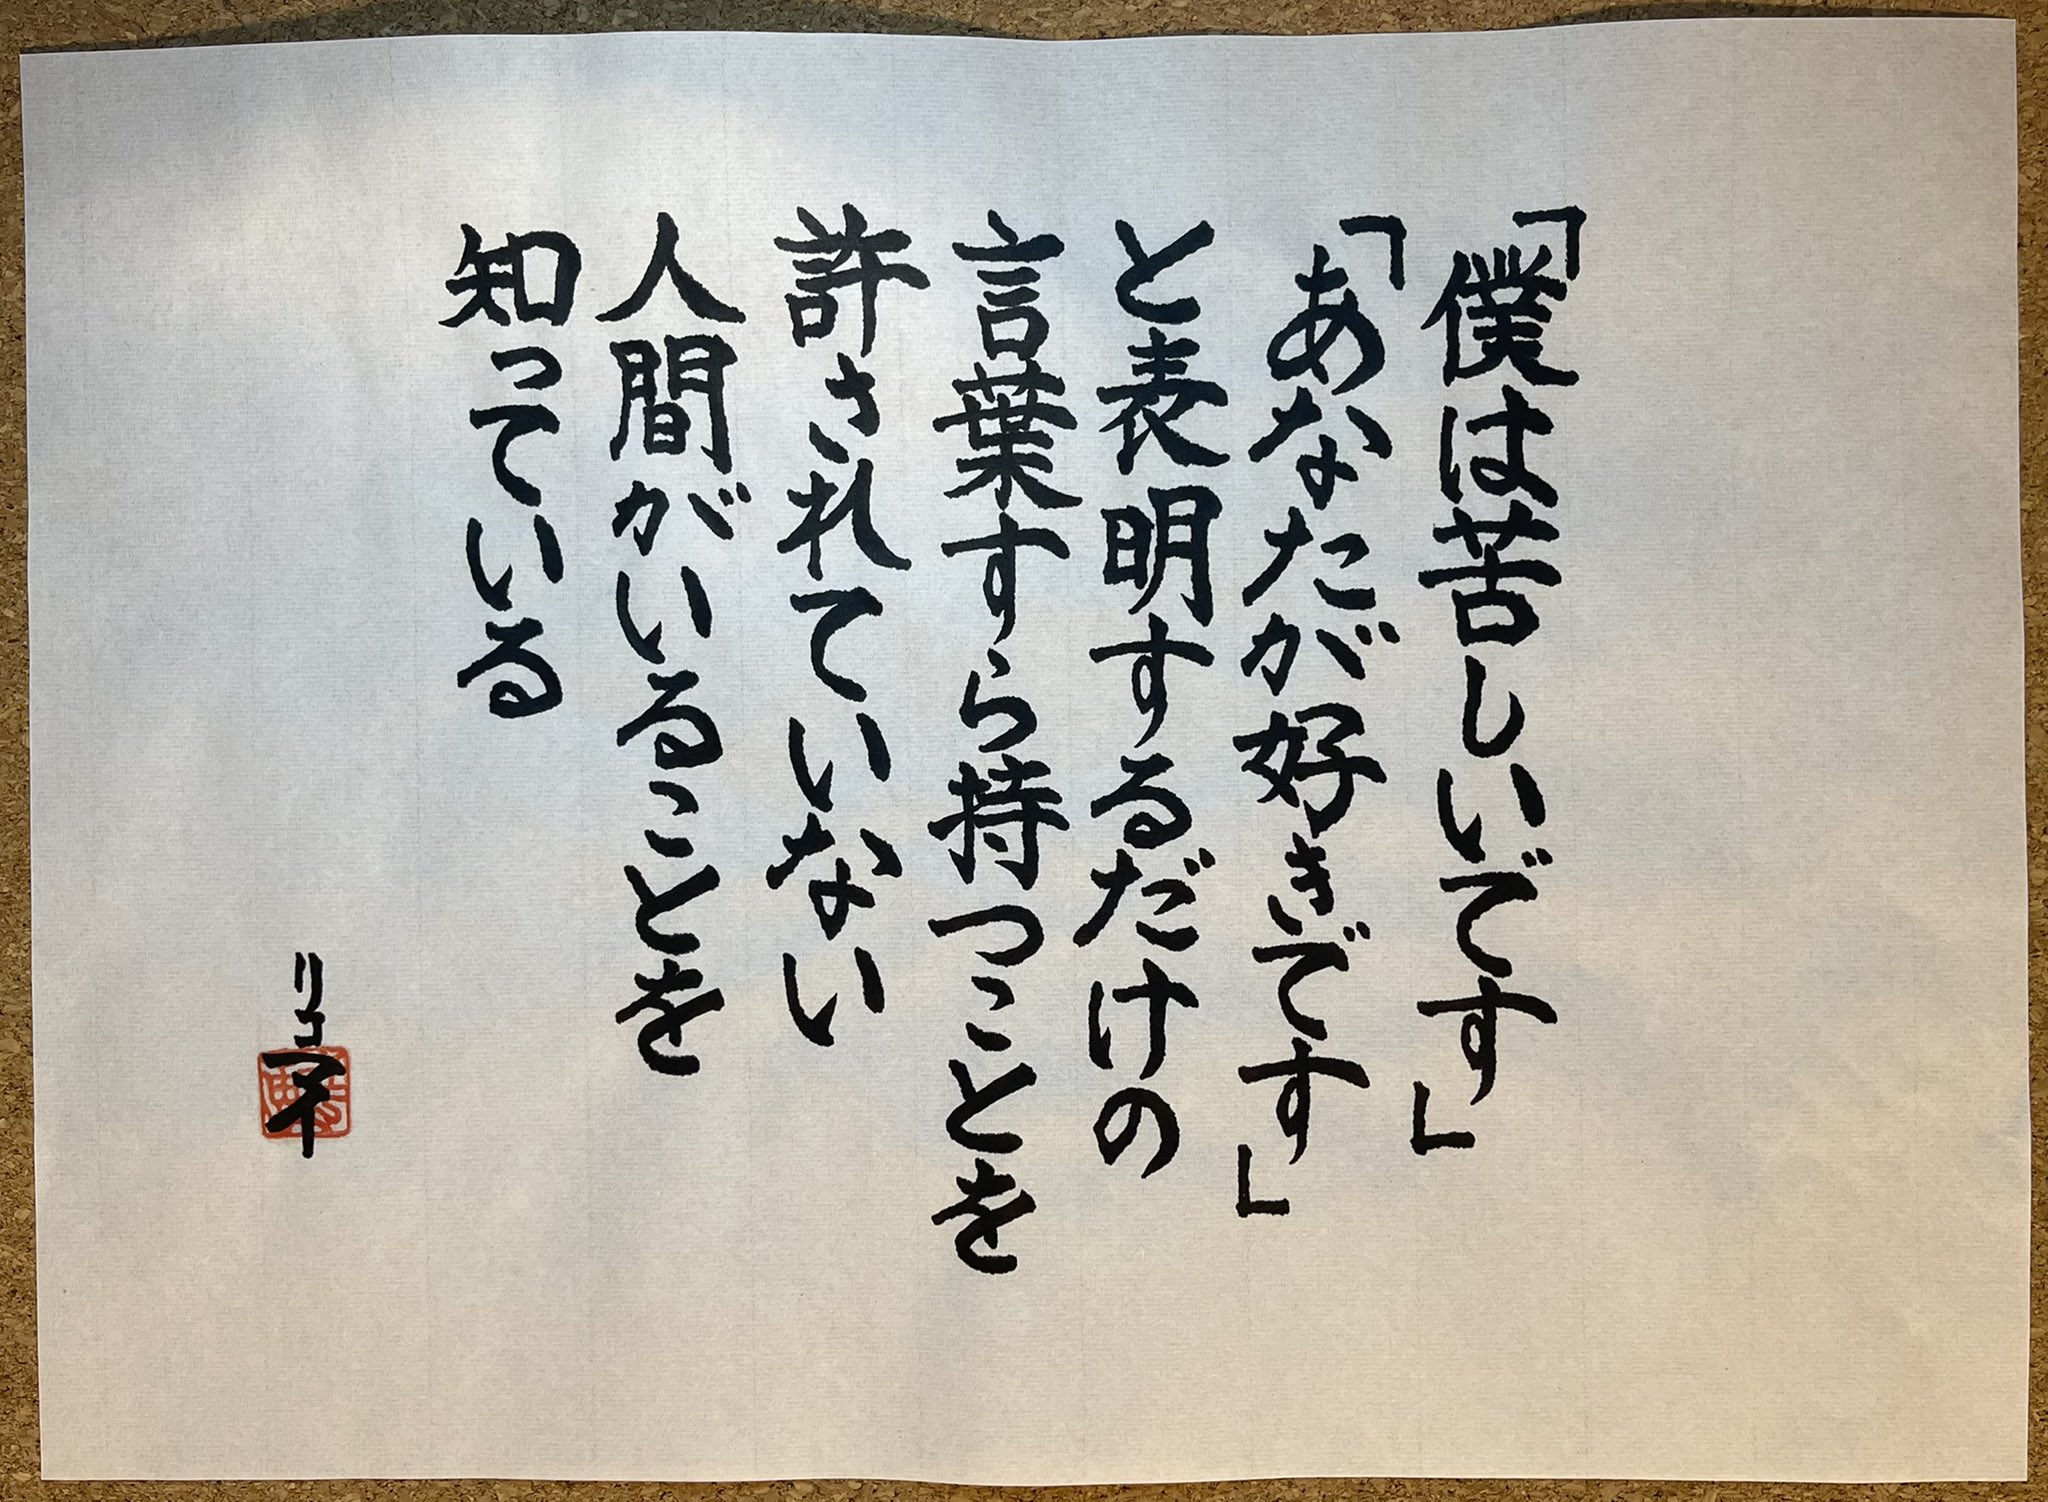 「僕は苦しいです」
「あなたが好きです」
と表明するだけの
言葉すら持つことを
許されていない
人間がいることを
知っている
リコ